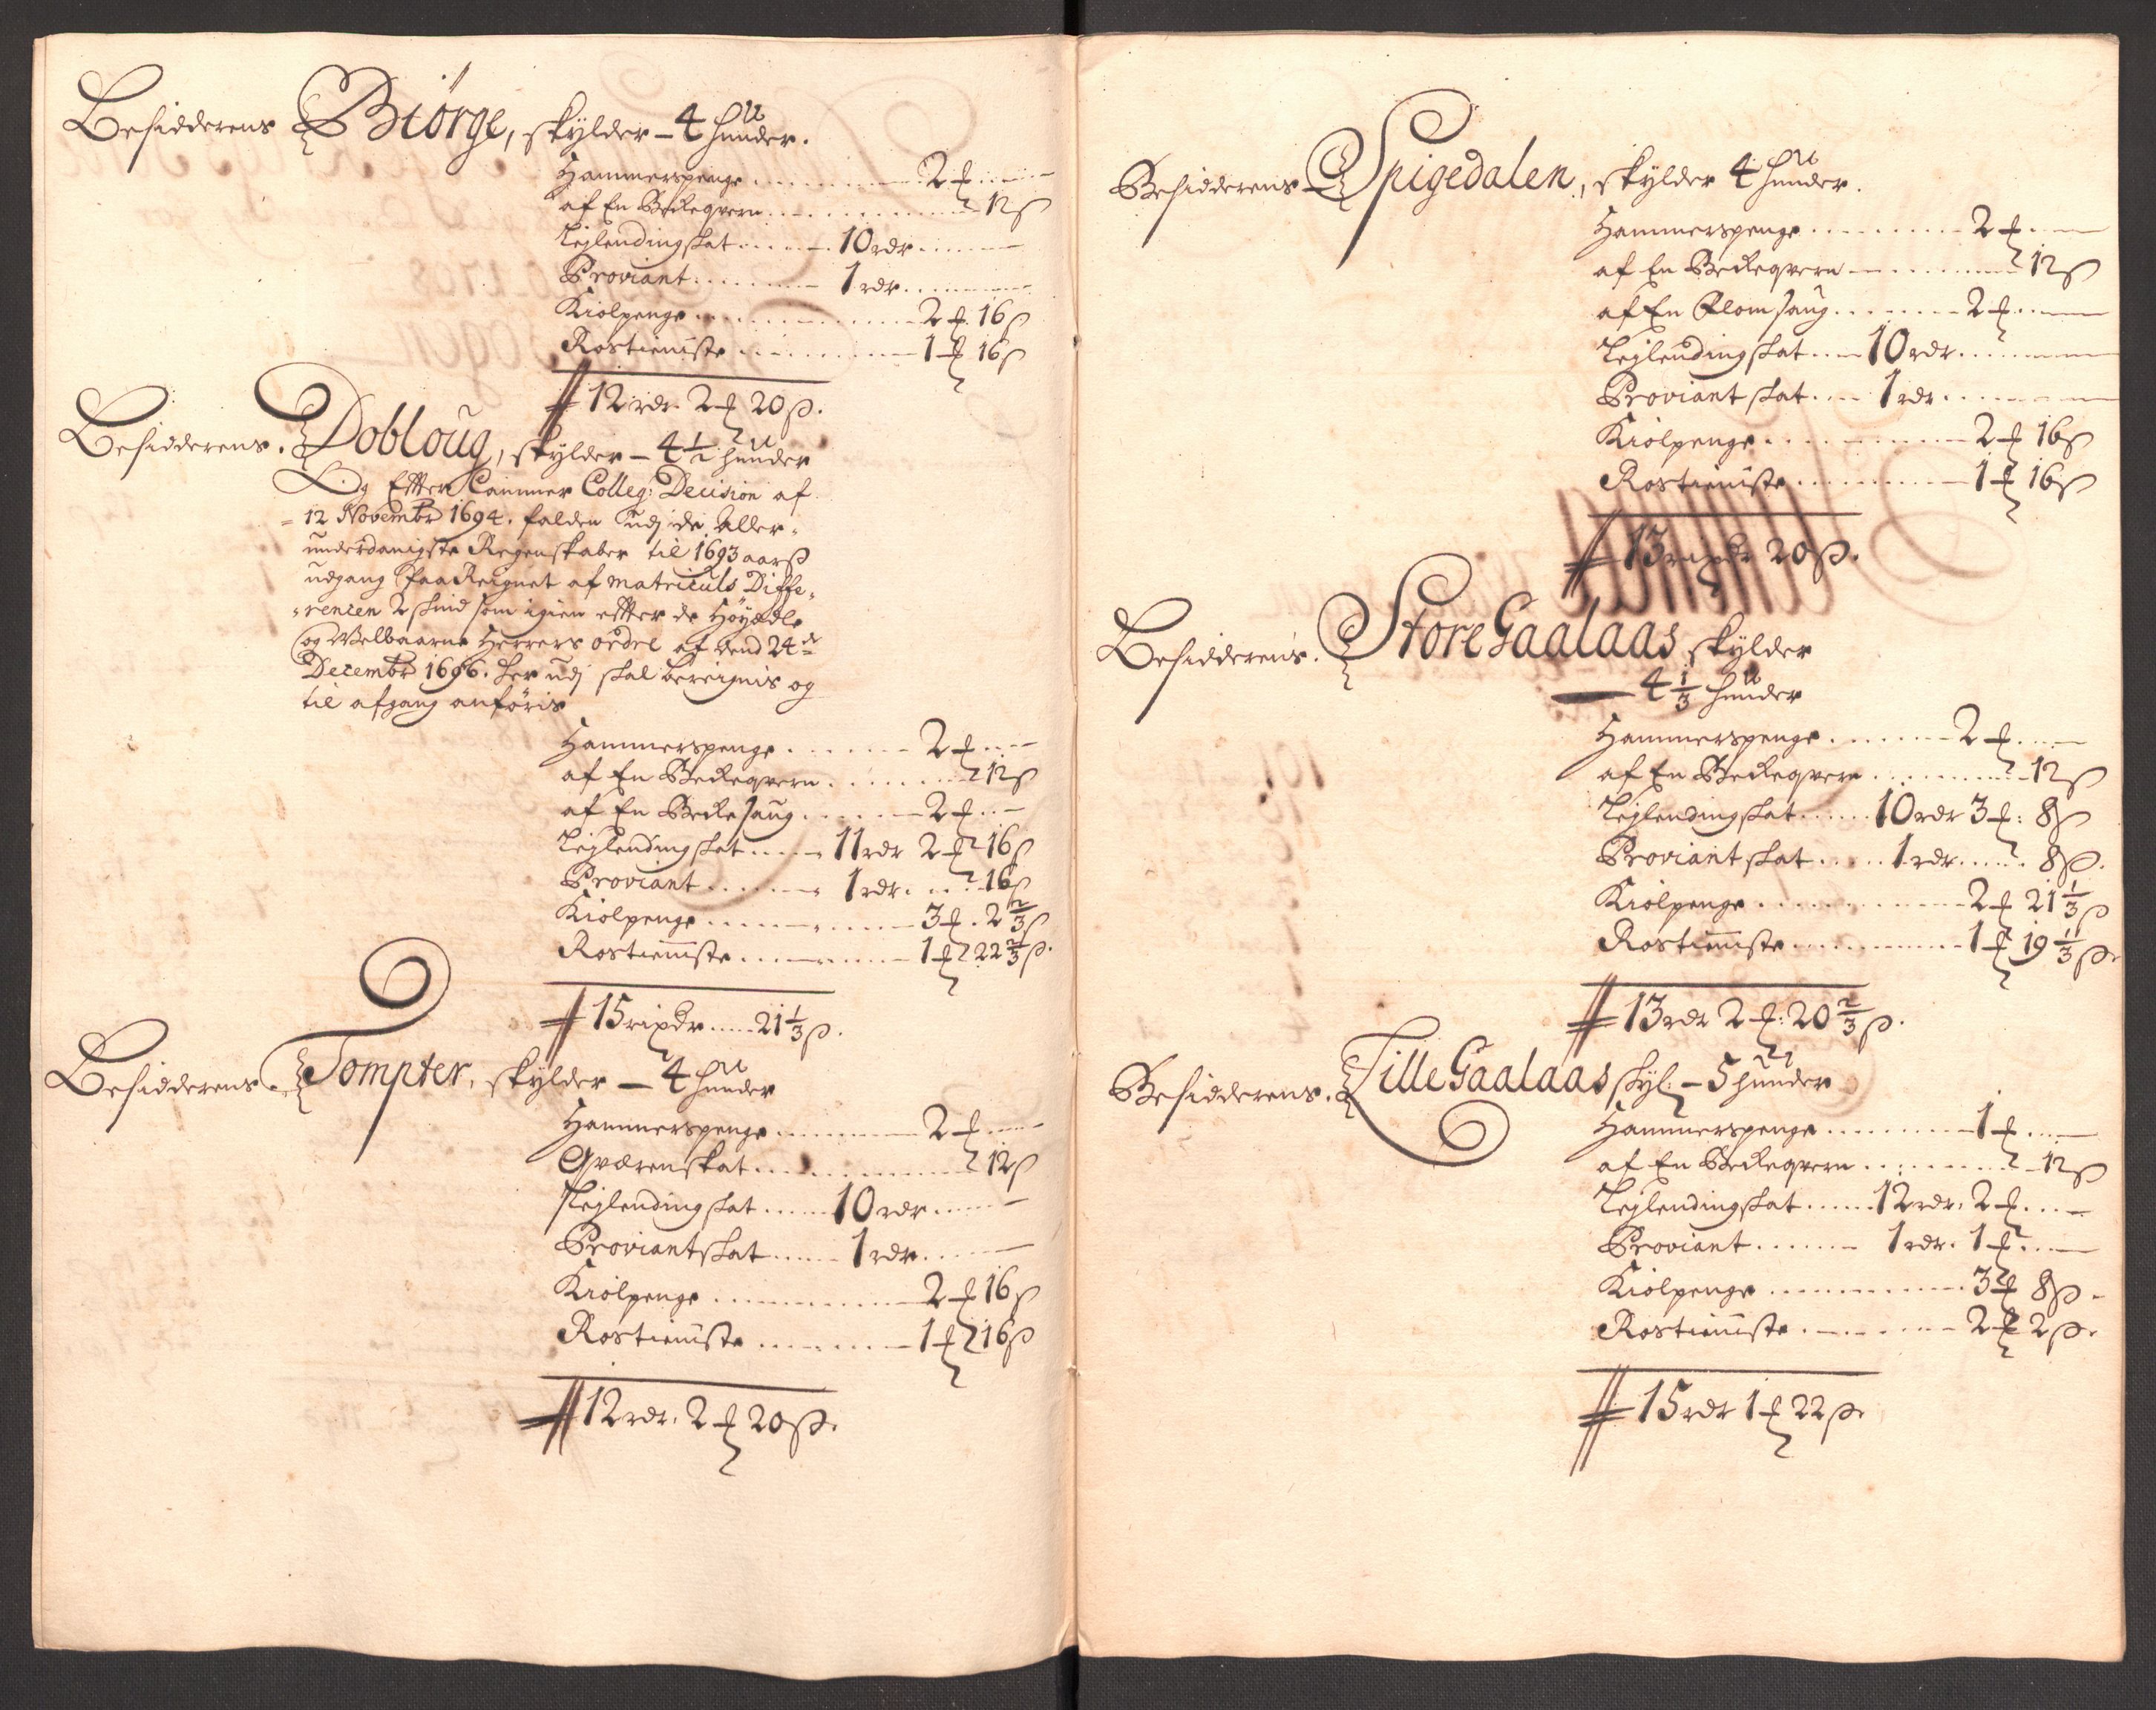 Besidderens Biørge, skylder – 4 hunder.
Hammerspenge . . . . 2 ₰ . . .
af En Beckeqvern . . . . 12 ß
Leylendingskat . . . . 10 rdr . . .
Proviant . . . . 1 rdr . . .
Kiølpenge . . . . 2 ₰ 16 ß
Rostieniste . . . . 1 ₰ 16 ß
12 rdr. 2 ₰ 20 ß.
Besidderens. Dobloug, skylder – 4 1/2 hunder
Og Efter Cammer Colleg: Decision af
= 12 Novembr 1694. falden udj de Aller-
underdanigste Regenskaber til 1693 aars
udgang paaReignet af matriculs Diffe-
-rencen 2 skind som igien efter de Høyædle
og Welbaarne Herrers ordre af dend 24de
Decembr 1696. her udj skal bereignis og
til afgang anføris
Hammerspenge . . . . 2 ₰ . . .
af En Beckeqvern . . . . 12 ß
af En Beckesaug . . . . 2 ₰ . . .
Leylendingskat . . . . 11 rdr 2 ₰ 16 ß
Proviant . . . . 1 rdr. . . . 16 ß
Kiølpenge . . . . 3 ₰ . 2 2/3 ß
Rostieniste . . . . 1 ₰ 22 2/3 ß.
15 rixdr . . . . 21 1/3 ß.
Besidderens. Tompter, skylder – 4 hunder
Hammerspenge . . . . 2 ₰ . . .
Qværenskat . . . . 12 ß
Leylendingskat . . . . 10 rdr . . .
Proviantskat . . . . 1 rdr . . .
Kiølpenge . . . . 2 ₰ 16 ß
Rostieniste . . . . 1 ₰ 16 ß
12 rdr. 2 ₰ 20 ß.
Besidderens Spigedalen, skylder 4 hunder.
Hammerspenge . . . . 2 ₰ . . .
af En Beckeqvern . . . . 12 ß
af En Flomsaug . . . . 2 ₰ . . .
Leylendingskat . . . . 10 rdr . . .
Proviantskat . . . . 1 rdr . . .
Kiølpenge . . . . 2 ₰ 16 ß
Rostieniste . . . . 1 ₰ 16 ß
13 rixdr 20 ß.
Besidderens. Store Gaalaas skylder
– 4 1/3 hunder
Hammerspenge . . . . 2 ₰ . . .
af En Beckeqvern . . . . 12 ß
Leylendingskat . . . . 10 rdr 3 ₰: 8 ß
Proviantskat . . . . 1 rdr . . . . 8 ß.
Kiølpenge . . . . 2 ₰ 21 1/3 ß
Rostieniste . . . . 1 ₰ 19 1/3 ß.
13 rdr 2 ₰: 20 2/3 ß.
Besidderens. Lille Gaalaas skyl: – 5 hunder
Hammerspenge . . . . 1 ₰ . . .
af En Beckeqvern . . . . 12 ß
Leylendingskat . . . . 12 rdr. 2 ₰ . . .
Proviant . . . . 1 rdr. 1 ₰ . . .
Kiølpenge . . . . 3 ₰ 8 ß.
Rostieniste . . . . 2 ₰ 2 ß.
15 rdr 1 ₰ 22 ß.